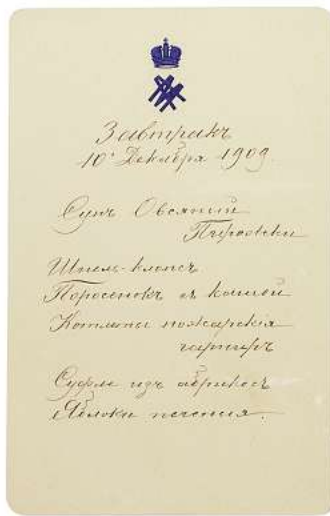 Завтракъ
10го Декабря 1909.
Супъ Овсяный
Пирожки
Шнель-клопсъ
Поросенокъ съ кашей
Котлеты пожарскія
гарниръ
Суфле изъ абрикосъ
Яблоки печеныя.